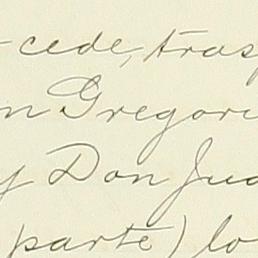 cede, trasp
n Gregori
y Don Jua
parte) lo